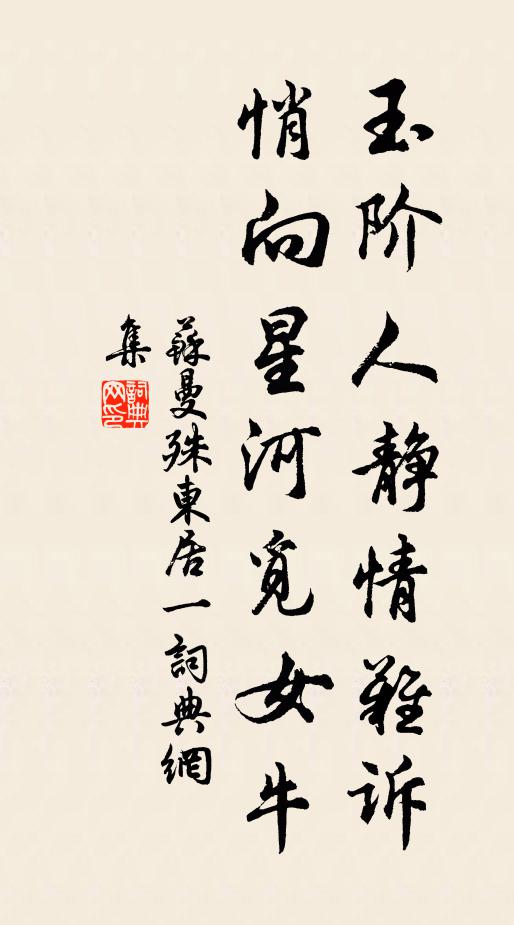 玉阶人静情难诉
悄向星河觅女牛
蘇曼殊東居一詞典網
集
詞典网印